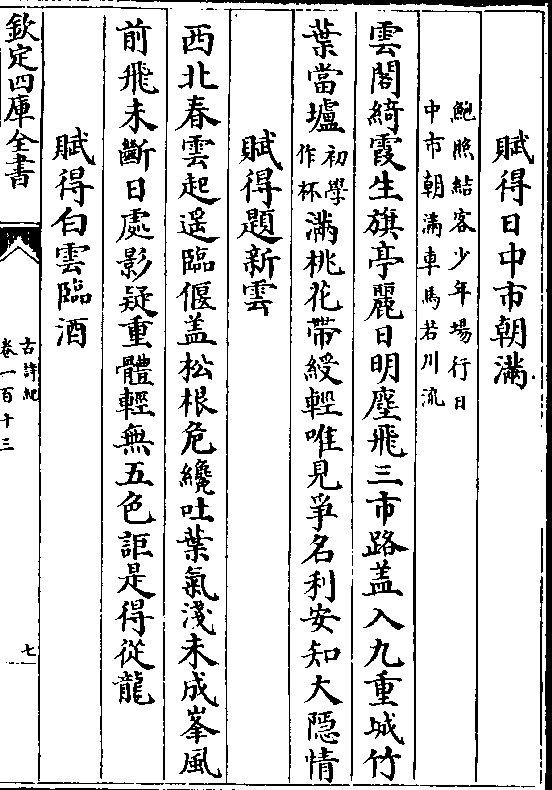 賦得日中市朝滿
鮑照結客少年場行日
中市朝滿車馬若川流
雲閣綺霞生旗亭麗日明塵飛三市路盖入九重城竹
葉當壚初學作杯滿桃花帶綬輕唯見爭名利安知大隱情
賦得題新雲
西北春雲起遥臨偃盖松根危纔吐葉氣淺未成峯風
前飛未斷日處影疑重體輕無五色詎是得從龍
賦得白雲臨酒
欽定四庫全書
古詩紀
卷一百十三
七